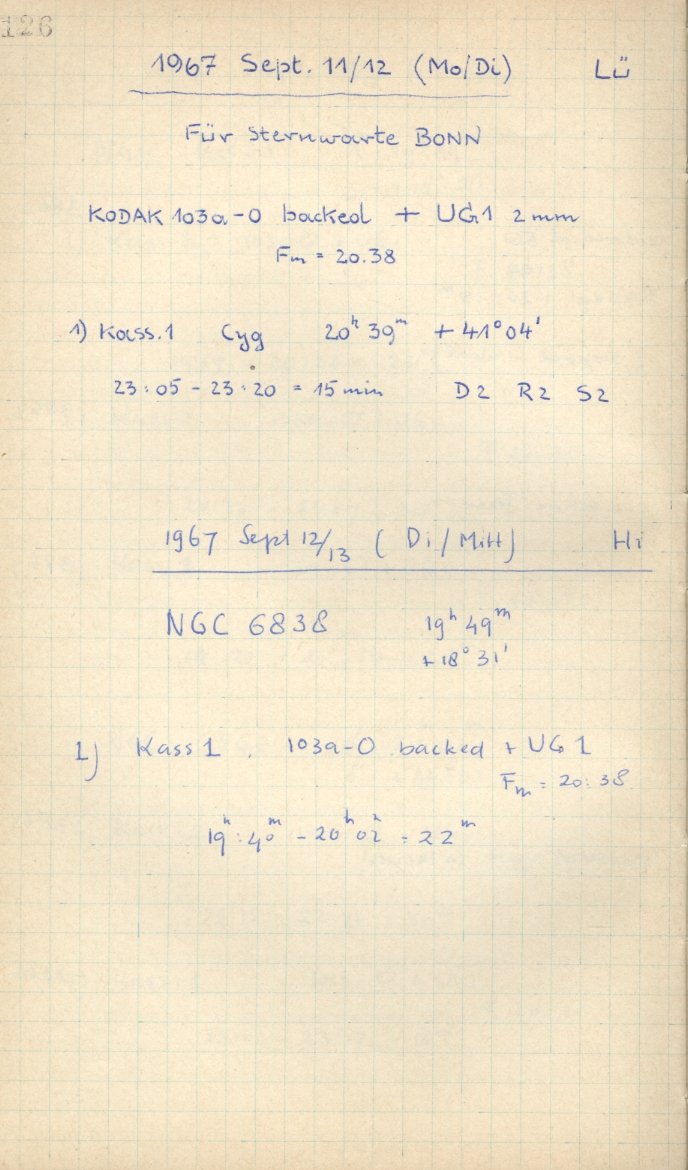 126
1967 Sept. 11/12 (Mo/Di) Lü
Für Sternwarte BONN
KODAK 103a-O backed + UG1 2mm
Fm = 20.38
1) Kass.1 Cyg 20ʰ 39ᵐ + 41° 04'
23:05 - 23:20 = 15 min D2 R2 S2
1967 Sept 12/13 (Di/Mitt) Hi
NGC 6838 19ʰ 49ᵐ
+ 18° 31'
1) Kass 1. 103a-O backed + UG1
Fm = 20:38
19ʰ:40ᵐ - 20ʰ 02 = 22ᵐ